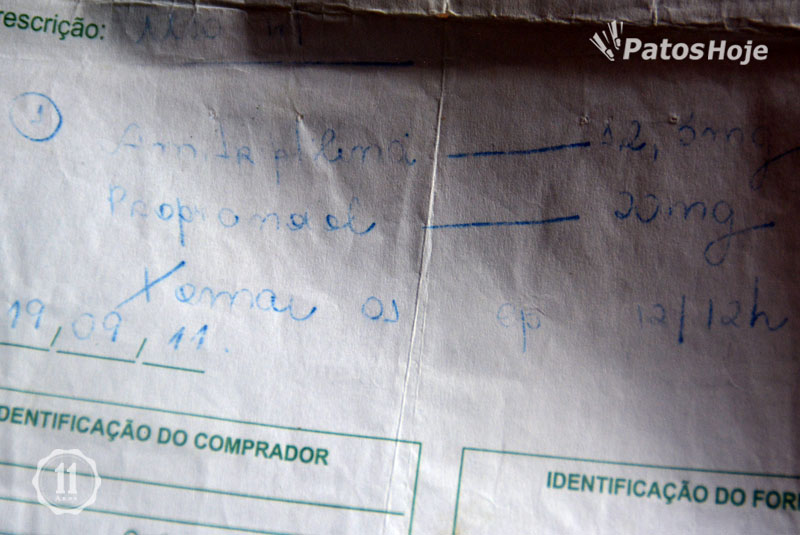 PatosHoje
rescrição: Uso
1 Amitriptilina 12,5mg
Propranolol 20mg
Tomar 01 cp 12/12h
19/09/11.
DENTIFICAÇÃO DO COMPRADOR
IDENTIFICAÇÃO DO FOR
11
Anos